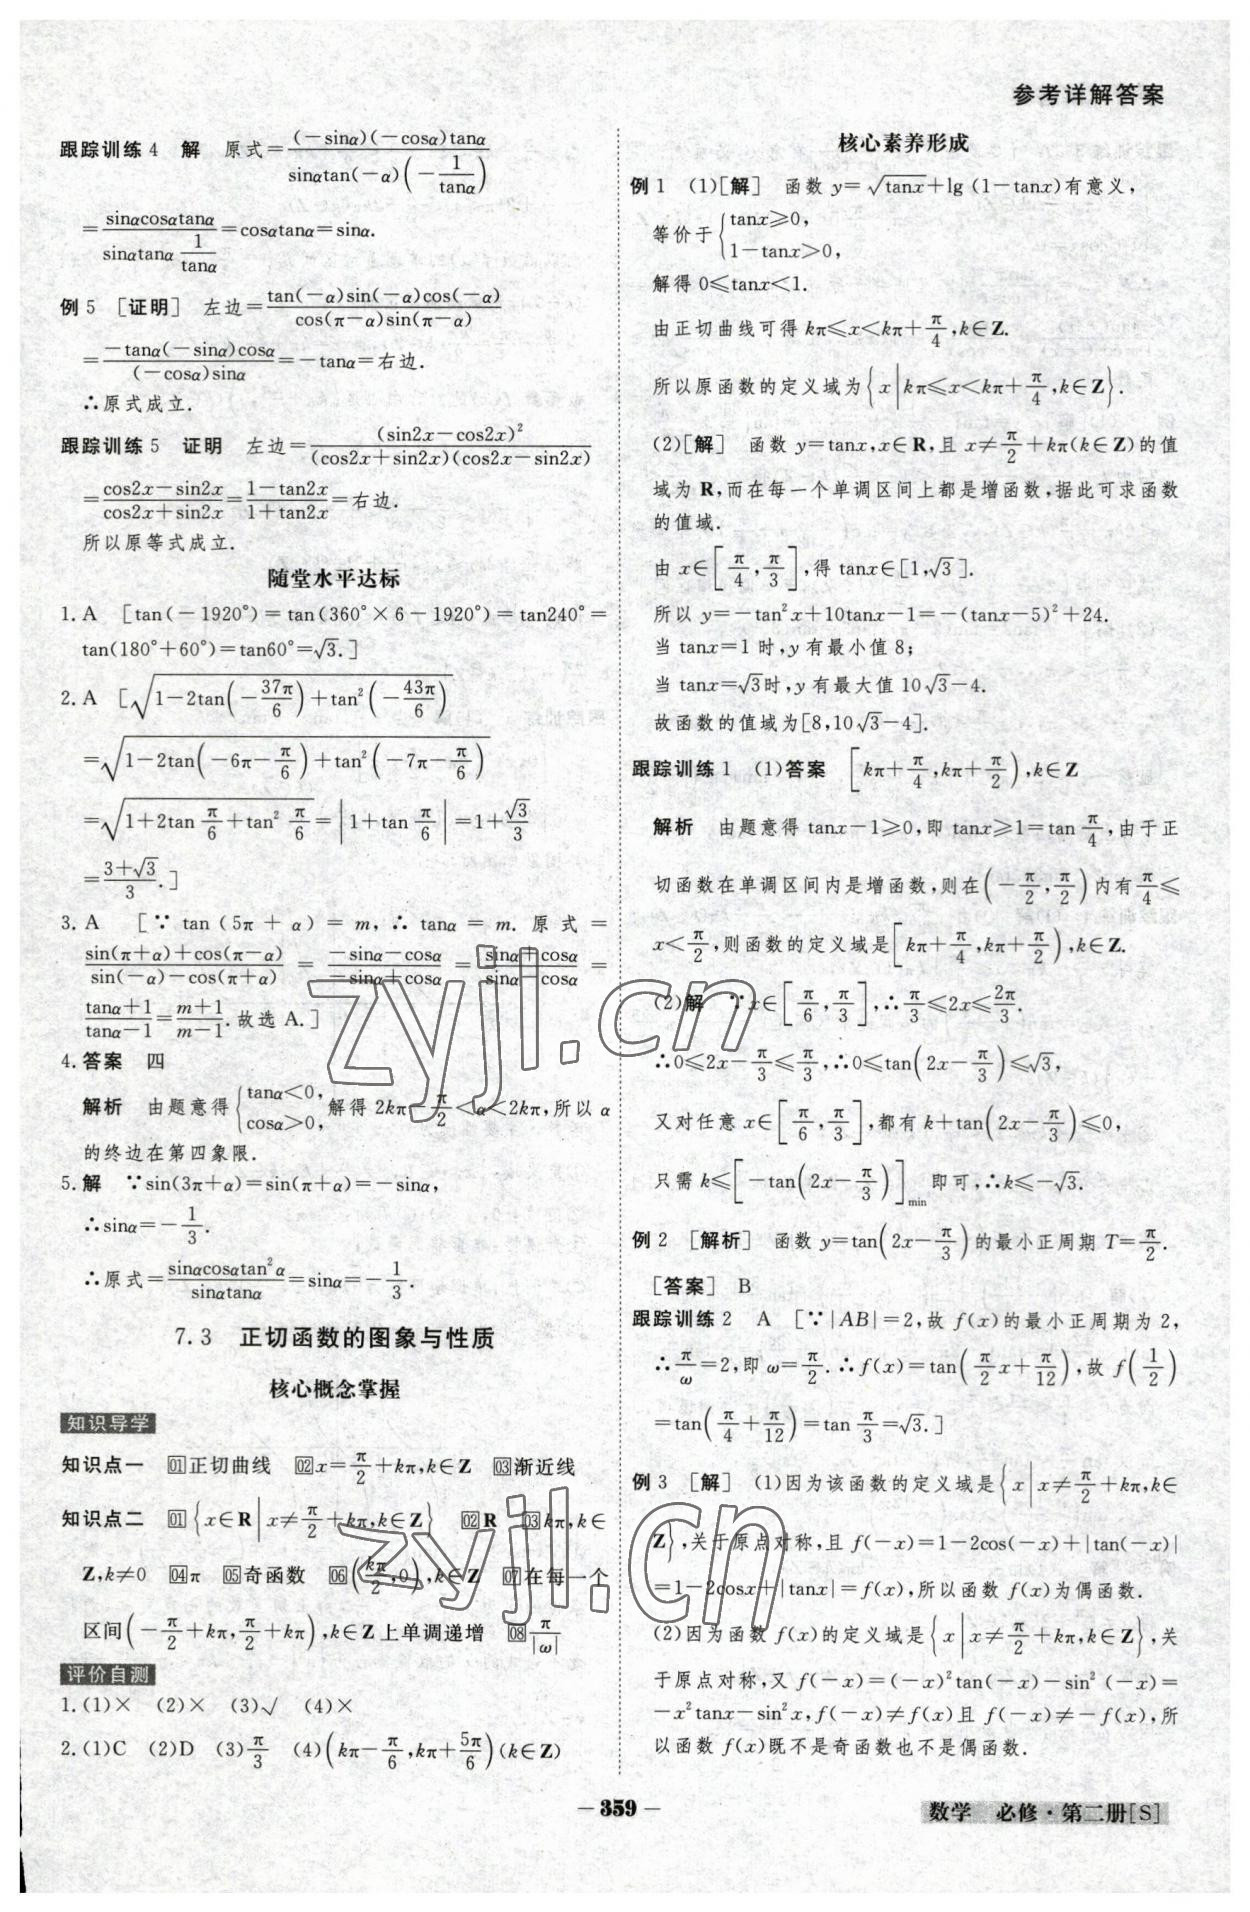 参考详解答案
跟踪训练4 解 原式=\frac{(-sinα)(-cosα)tanα}{sinαtan(-α)(-\frac{1}{tanα})}
=\frac{sinαcosαtanα}{sinαtanα\frac{1}{tanα}}=cosαtanα=sinα.
例5 [证明] 左边=\frac{tan(-α)sin(-α)cos(-α)}{cos(π-α)sin(π-α)}
=\frac{-tanα(-sinα)cosα}{(-cosα)sinα}=-tanα=右边.
∴原式成立.
跟踪训练5 证明 左边=\frac{(sin2x-cos2x)^2}{(cos2x+sin2x)(cos2x-sin2x)}
=\frac{cos2x-sin2x}{cos2x+sin2x}=\frac{1-tan2x}{1+tan2x}=右边.
所以原等式成立.
随堂水平达标
1. A [tan(-1920°)=tan(360°×6-1920°)=tan240°=
tan(180°+60°)=tan60°=√3.]
2. A [\sqrt{1-2tan(-\frac{37π}{6})+tan^2(-\frac{43π}{6})}
=\sqrt{1-2tan(-6π-\frac{π}{6})+tan^2(-7π-\frac{π}{6})}
=\sqrt{1+2tan\frac{π}{6}+tan^2\frac{π}{6}}=|1+tan\frac{π}{6}|=1+\frac{√3}{3}
=\frac{3+√3}{3}.]
3. A [∵tan(5π+α)=m,∴tanα=m.原式=
\frac{sin(π+α)+cos(π-α)}{sin(-α)-cos(π+α)}=\frac{-sinα-cosα}{-sinα+cosα}=\frac{sinα+cosα}{sinα-cosα}=
\frac{tanα+1}{tanα-1}=\frac{m+1}{m-1}.故选A.]
4. 答案 四
解析 由题意得{tanα<0, cosα>0,解得2kπ-\frac{π}{2}<α<2kπ,所以α
的终边在第四象限.
5. 解 ∵sin(3π+α)=sin(π+α)=-sinα,
∴sinα=-\frac{1}{3}.
∴原式=\frac{sinαcosαtan^2α}{sinαtanα}=sinα=-\frac{1}{3}.
7.3 正切函数的图象与性质
核心概念掌握
知识导学
知识点一 01正切曲线 02x=\frac{π}{2}+kπ,k∈Z 03渐近线
知识点二 01{x∈R|x≠\frac{π}{2}+kπ,k∈Z} 02R 03kπ,k∈
Z,k≠0 04π 05奇函数 06(\frac{kπ}{2},0),k∈Z 07在每一个
区间(-\frac{π}{2}+kπ,\frac{π}{2}+kπ),k∈Z上单调递增 08\frac{π}{|ω|}
评价自测
1. (1)× (2)× (3)√ (4)×
2. (1)C (2)D (3)\frac{π}{3} (4)(kπ-\frac{π}{6},kπ+\frac{5π}{6})(k∈Z)
核心素养形成
例1 (1)[解] 函数y=\sqrt{tanx}+lg(1-tanx)有意义,
等价于{tanx≥0, 1-tanx>0,
解得0≤tanx<1.
由正切曲线可得kπ≤x<kπ+\frac{π}{4},k∈Z.
所以原函数的定义域为{x|kπ≤x<kπ+\frac{π}{4},k∈Z}.
(2)[解] 函数y=tanx,x∈R,且x≠\frac{π}{2}+kπ(k∈Z)的值
域为R,而在每一个单调区间上都是增函数,据此可求函数
的值域.
由x∈[\frac{π}{4},\frac{π}{3}],得tanx∈[1,√3].
所以y=-tan^2x+10tanx-1=-(tanx-5)^2+24.
当tanx=1时,y有最小值8;
当tanx=√3时,y有最大值10√3-4.
故函数的值域为[8,10√3-4].
跟踪训练1 (1)答案 [kπ+\frac{π}{4},kπ+\frac{π}{2}),k∈Z
解析 由题意得tanx-1≥0,即tanx≥1=tan\frac{π}{4},由于正
切函数在单调区间内是增函数,则在(-\frac{π}{2},\frac{π}{2})内有\frac{π}{4}≤
x<\frac{π}{2},则函数的定义域是[kπ+\frac{π}{4},kπ+\frac{π}{2}),k∈Z.
(2)解 ∵x∈[\frac{π}{6},\frac{π}{3}],∴\frac{π}{3}≤2x≤\frac{2π}{3}.
∴0≤2x-\frac{π}{3}≤\frac{π}{3},∴0≤tan(2x-\frac{π}{3})≤√3,
又对任意x∈[\frac{π}{6},\frac{π}{3}],都有k+tan(2x-\frac{π}{3})≤0,
只需k≤[-tan(2x-\frac{π}{3})]_{min}即可,∴k≤-√3.
例2 [解析] 函数y=tan(2x-\frac{π}{3})的最小正周期T=\frac{π}{2}.
[答案] B
跟踪训练2 A [∵|AB|=2,故f(x)的最小正周期为2,
∴\frac{π}{ω}=2,即ω=\frac{π}{2}.∴f(x)=tan(\frac{π}{2}x+\frac{π}{12}),故f(\frac{1}{2})
=tan(\frac{π}{4}+\frac{π}{12})=tan\frac{π}{3}=√3.]
例3 [解] (1)因为该函数的定义域是{x|x≠\frac{π}{2}+kπ,k∈
Z},关于原点对称,且f(-x)=1-2cos(-x)+|tan(-x)|
=1-2cosx+|tanx|=f(x),所以函数f(x)为偶函数.
(2)因为函数f(x)的定义域是{x|x≠\frac{π}{2}+kπ,k∈Z},关
于原点对称,又f(-x)=(-x)^2tan(-x)-sin^2(-x)=
-x^2tanx-sin^2x,f(-x)≠f(x)且f(-x)≠-f(x),所
以函数f(x)既不是奇函数也不是偶函数.
zyjl.cn
zyjl.cn
-359-
数学 必修·第二册[S]